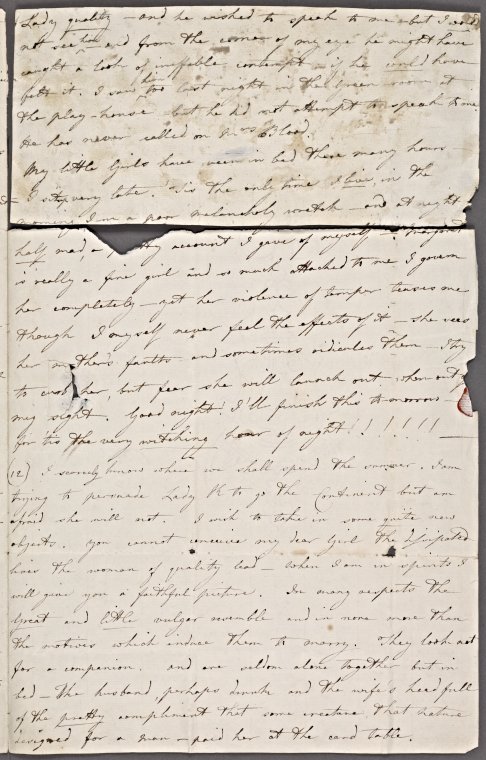 Lady quality – and he wished to speak to me – but I would
not see him and from the corner of my eye he might have
caught a look of ineffable contempt – if he could have
felt it. I saw him too last night in the Green room at
the play-house – but he did not attempt to speak to me
He has never called on Mrs Blood.
My little Girls have been in bed these many hours –
I sit up very late. 'Tis the only time I live, in the
morning I am a poor melancholy wretch – and at night
half mad a pretty account I give of myself – Margaret
is really a fine girl and so much attached to me I govern
her completely – yet her violence of temper teases me
though I myself never feel the effects of it – she sees
her mother's faults – and sometimes ridicules them – I try
to curb her, but fear she will launch out when out of
my sight. Good night! I'll finish this tomorrow –
for tis the very witching hour of night!!!!!! –
12) I scarcely know where we shall spend the summer. I am
trying to persuade Lady K to go the Continent but am
afraid she will not. I wish to take in some quite new
objects. You cannot conceive my dear Girl the dissipated
lives the woman of quality lead – when I am in spirits I
will give you a faithful picture. In many respects the
Great and little vulgar resemble and in none more than
the motives which induce them to marry. They look not
for a companion. and are seldom alone together but in
bed – The husband, perhaps drunk and the wife's head full
of the pretty compliment that some creature, that nature
designed for a Man – paid her at the card table.